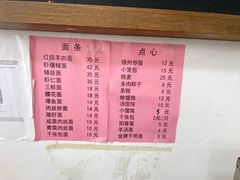 面条
红烧羊肉面 35元
虾爆鳝面 42元
鳝丝面 35元
虾仁面 30元
三鲜面 18元
腰花面 18元
爆鱼面 14元
肉丝炒面 14元
猪肝面 14元
咸菜肉丝面 14元
青菜肉丝面 14元
千张包面 14元
点心
扬州炒饭 12元
小笼包 15元
烧麦 25元
多肉粽子 6元
蒸糕 4元
炒馄饨 12元
汤馄饨 10元
小馄饨 5元
千张包 2元/只
阳春面 5元
羊汤面 6元
金牌干挑面 6元